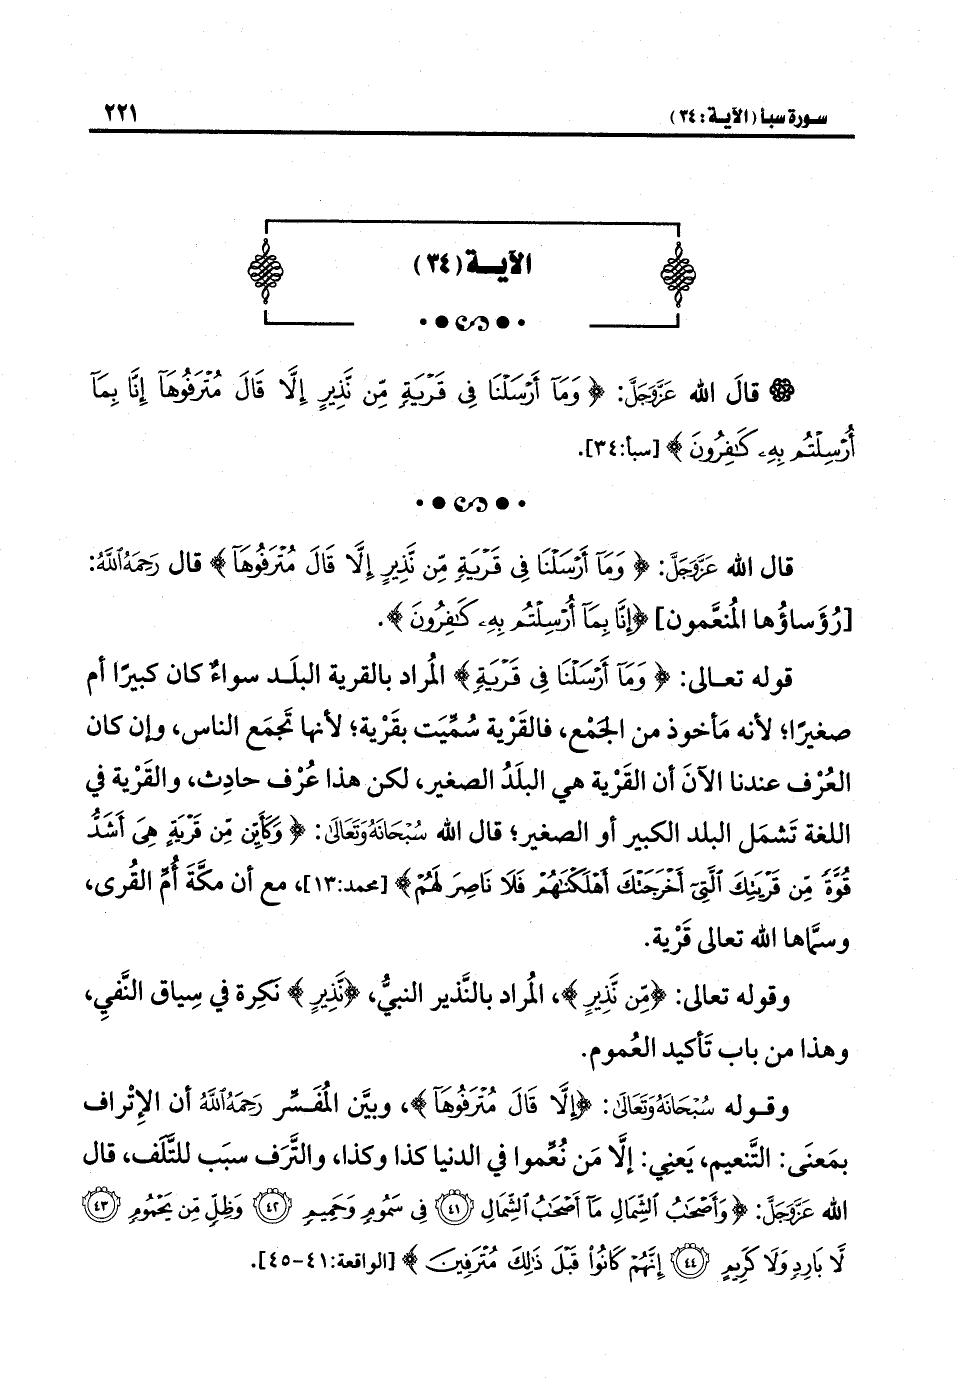 سورة سبأ (الآية: ٣٤)
٢٢١
الآيــة (٣٤)
قالَ الله عَزَّوَجَلَّ: ﴿ وَمَآ أَرْسَلْنَا فِى قَرْيَةٍ مِّن نَّذِيرٍ إِلَّا قَالَ مُتْرَفُوهَآ إِنَّا بِمَآ
أُرْسِلْتُم بِهِۦ كَٰفِرُونَ ﴾ [سبأ:٣٤].
قال الله عَزَّوَجَلَّ: ﴿ وَمَآ أَرْسَلْنَا فِى قَرْيَةٍ مِّن نَّذِيرٍ إِلَّا قَالَ مُتْرَفُوهَآ ﴾ قال رَحِمَهُ ٱللَّهُ:
[رُؤَساؤُها المُنعَّمون] ﴿إِنَّا بِمَآ أُرْسِلْتُم بِهِۦ كَٰفِرُونَ ﴾.
قوله تعـالى: ﴿ وَمَآ أَرْسَلْنَا فِى قَرْيَةٍ﴾ المُراد بالقرية البلَـد سواءٌ كان كبيرًا أم
صغيرًا؛ لأنه مَأخوذ من الجَمْع، فالقَرْية سُمِّيَت بقَرْية؛ لأنها تَجمَع الناس، وإن كان
العُرْف عندنا الآنَ أن القَرْية هي البلَدُ الصغير، لكن هذا عُرْف حادِث، والقَرْية في
اللغة تَشمَل البلد الكبير أو الصغير؛ قال الله سُبْحَانَهُ وَتَعَالَى: ﴿ وَكَأَيِّن مِّن قَرْيَةٍ هِىَ أَشَدُّ
قُوَّةً مِّن قَرْيَتِكَ ٱلَّتِىٓ أَخْرَجَتْكَ أَهْلَكْنَٰهُمْ فَلَا نَاصِرَ لَهُمْ﴾ [محمد:١٣]، مع أن مكَّةَ أُمِّ القُرى،
وسمَّاها الله تعالى قَرْية.
وقوله تعالى: ﴿مِّن نَّذِيرٍ ﴾، المُراد بالنَّذير النبيُّ، ﴿نَّذِيرٍ ﴾ نَكِرة في سِياق النَّفيِ،
وهذا من باب تَأكيد العُموم.
وقـوله سُبْحَانَهُ وَتَعَالَى: ﴿إِلَّا قَالَ مُتْرَفُوهَآ ﴾، وبيَّن المُفَسِّر رَحِمَهُ ٱللَّهُ أن الإِتْراف
بمَعنَى: التَّنعيم، يَعنِي: إلَّا مَن نُعِّموا في الدنيا كذا وكذا، والتَّرَف سبَب للتَّلَف، قال
الله عَزَّوَجَلَّ: ﴿ وَأَصْحَٰبُ ٱلشِّمَالِ مَآ أَصْحَٰبُ ٱلشِّمَالِ ٤١ فِى سَمُومٍ وَحَمِيمٍ ٤٢ وَظِلٍّ مِّن يَحْمُومٍ ٤٣
لَّا بَارِدٍ وَلَا كَرِيمٍ ٤٤ إِنَّهُمْ كَانُوا۟ قَبْلَ ذَٰلِكَ مُتْرَفِينَ ﴾ [الواقعة:٤١-٤٥].